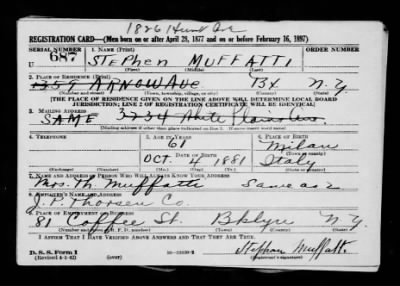 1826 Hunt Ave
REGISTRATION CARD—(Men born on or after April 28, 1877 and on or before February 16, 1897)
SERIAL NUMBER 1. NAME (Print) ORDER NUMBER
U 687 STEPHEN MUFFATTI
(First) (Middle) (Last)
2. PLACE OF RESIDENCE (Print)
ARNOW AVE BX N.Y.
(Number and street) (Town, township, village, or city) (County) (State)
[THE PLACE OF RESIDENCE GIVEN ON THE LINE ABOVE WILL DETERMINE LOCAL BOARD
JURISDICTION; LINE 2 OF REGISTRATION CERTIFICATE WILL BE IDENTICAL]
3. MAILING ADDRESS
SAME 3234 White Plains Ave.
[Mailing address if other than place indicated on line 2. If same insert word same]
4. TELEPHONE 5. AGE IN YEARS 6. PLACE OF BIRTH
61 Milan
DATE OF BIRTH (Town or county)
OCT. 4 1881 Italy
(Exchange) (Number) (Mo.) (Day) (Yr.) (State or country)
7. NAME AND ADDRESS OF PERSON WHO WILL ALWAYS KNOW YOUR ADDRESS
Mrs. Th. Muffatti Same as 2
8. EMPLOYER'S NAME AND ADDRESS
J. P. Thorsen Co.
9. PLACE OF EMPLOYMENT OR BUSINESS
81 Coffee St. Bklyn N.Y.
(Number and street or R. F. D. number) (Town) (County) (State)
I AFFIRM THAT I HAVE VERIFIED ABOVE ANSWERS AND THAT THEY ARE TRUE.
Stephan Muffatti
D. S. S. Form 1
(Revised 4-1-42) (over)